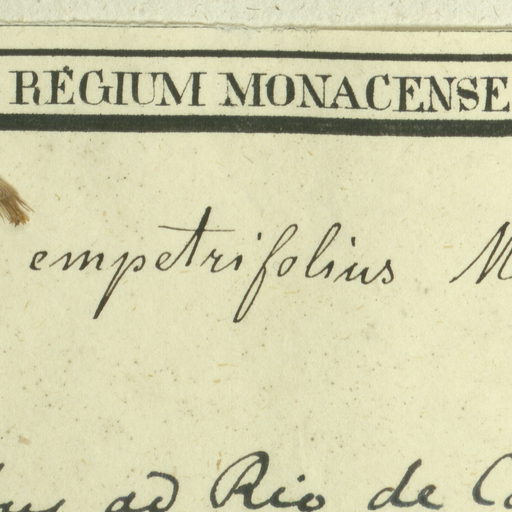 RÉGIUM MONACENSE
empetrifolius M
ad Rio de Co